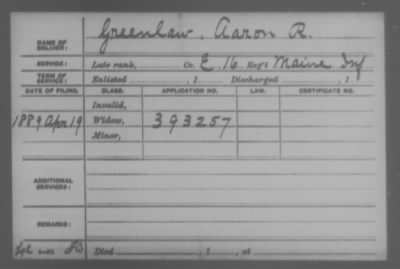 NAME OF SOLDIER: Greenlaw, Aaron R.
SERVICE: Late rank, Co. E, 16 Reg't Maine Inf
TERM OF SERVICE: Enlisted , 1 Discharged , 1
DATE OF FILING. CLASS. APPLICATION NO. LAW. CERTIFICATE NO.
Invalid,
1889 Apr 19 Widow, 393257
Minor,
ADDITIONAL SERVICES:
REMARKS:
Died , 1 , at